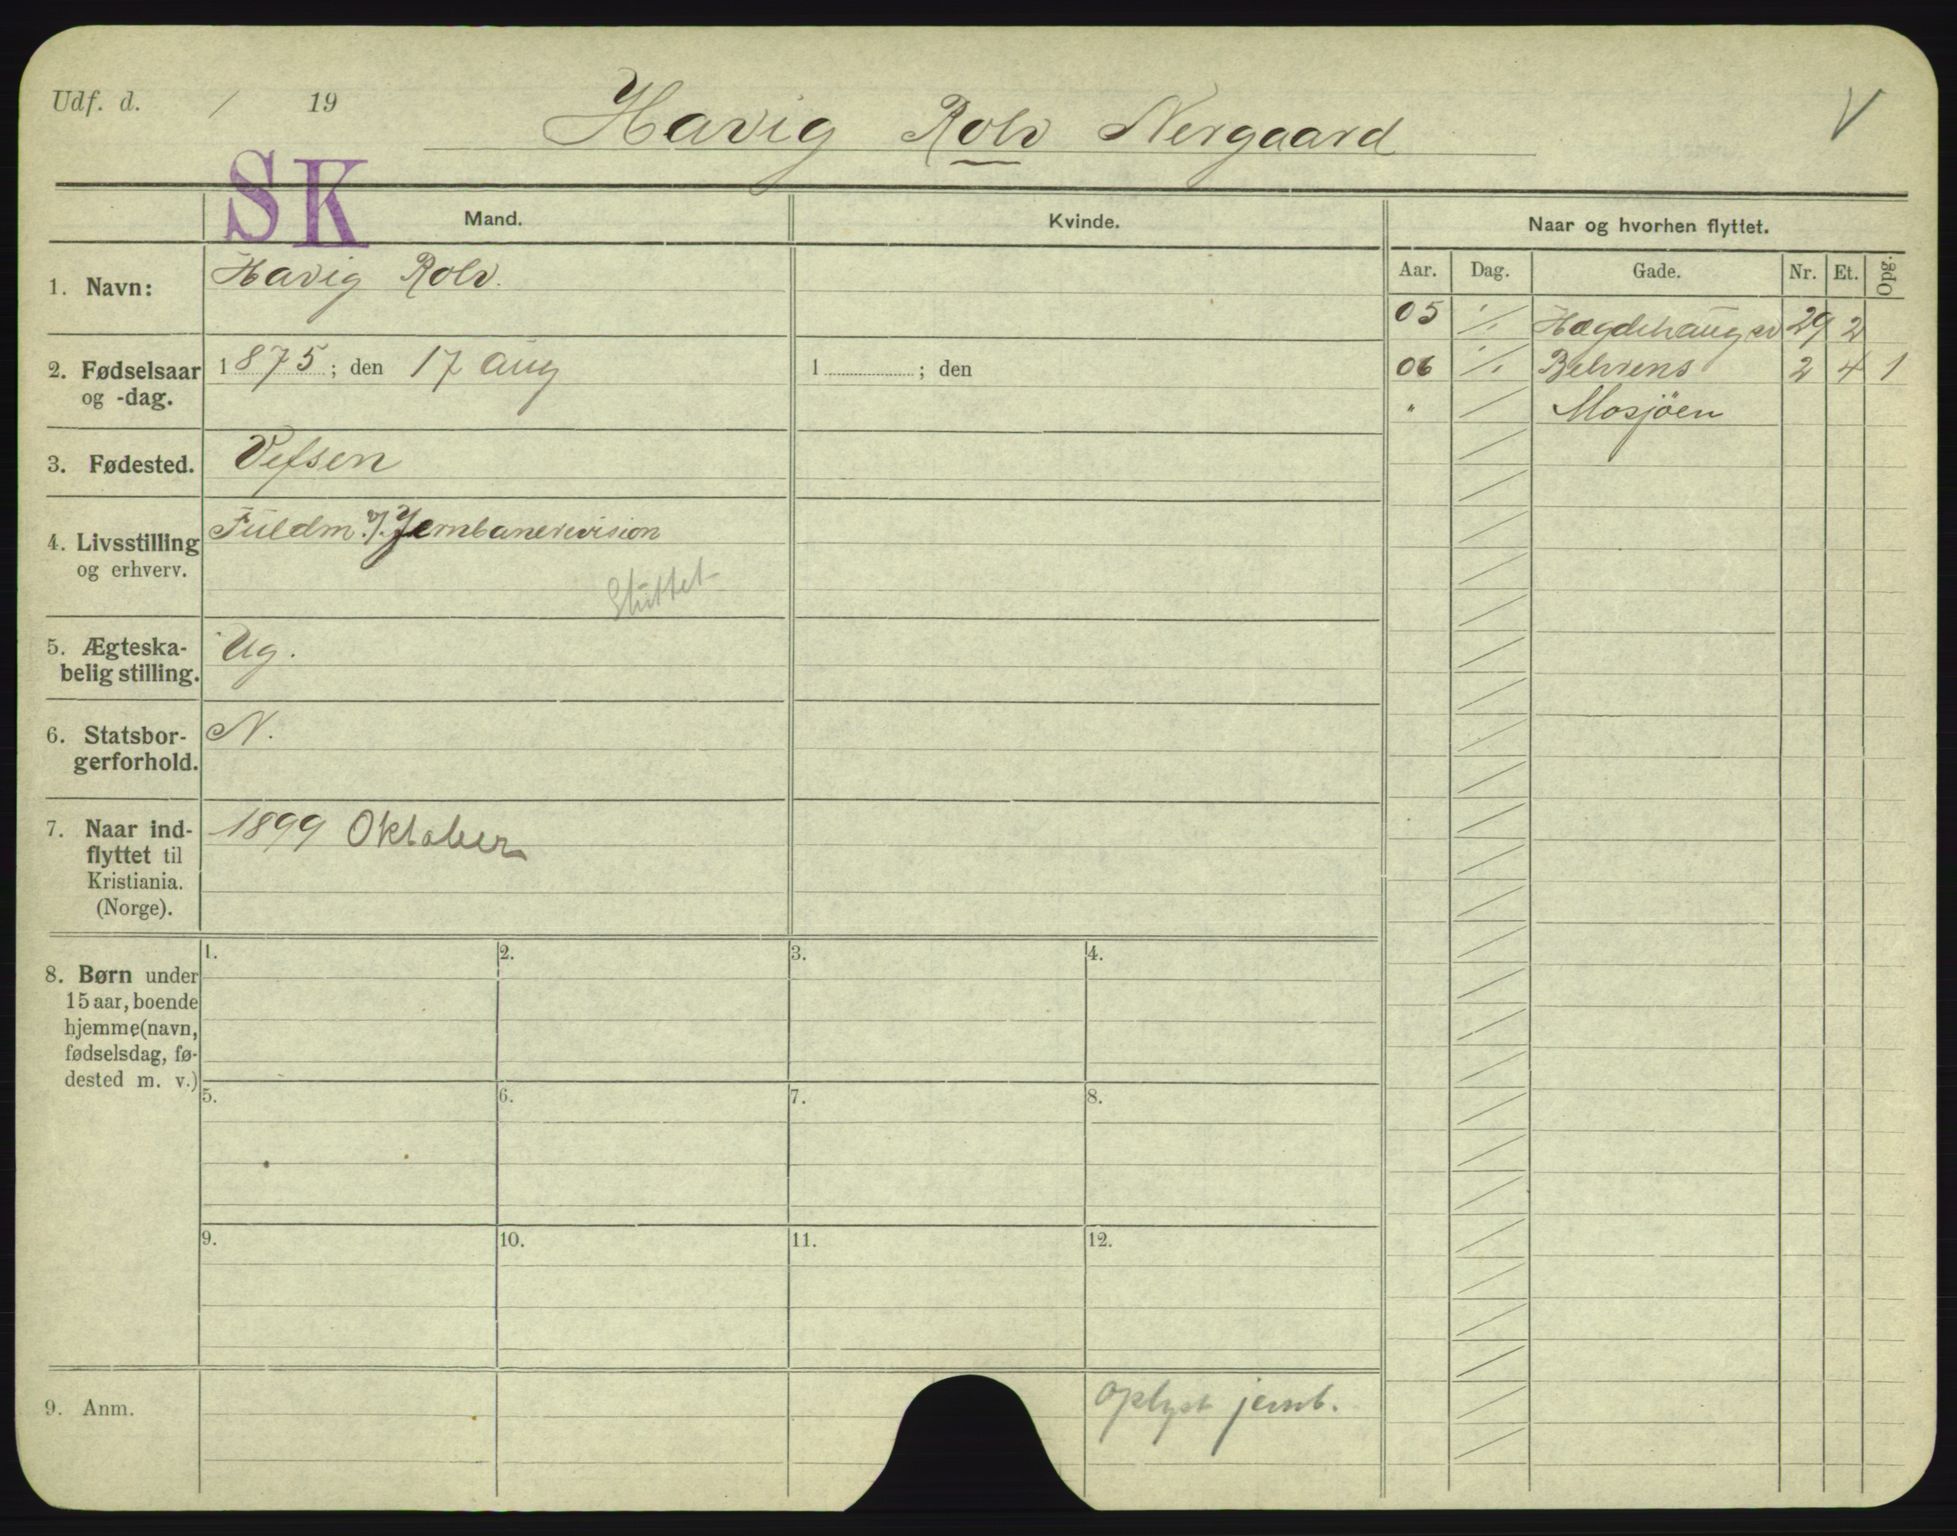 Udf. d. / 19
Havig Rolv Nergaard
V
SK
Mand.
Kvinde.
Naar og hvorhen flyttet.
Aar. Dag. Gade. Nr. Et. Opg.
1. Navn:
Havig Rolv.
05 1/1 Hægdehaugsv 29 2
2. Fødselsaar
og -dag.
1875; den 17 aug
1 ; den
06 1/1 Behrens 2 4 1
" / Mosjöen
3. Fødested.
Vefsen
4. Livsstilling
og erhverv.
Fuldm. i/. Jernbanerevision
Sluttet
5. Ægteska-
belig stilling.
Ug.
6. Statsbor-
gerforhold.
N.
7. Naar ind-
flyttet til
Kristiania.
(Norge).
1899 Oktober
8. Børn under
15 aar, boende
hjemme(navn,
fødselsdag, fø-
dested m. v.)
1. 2. 3. 4.
5. 6. 7. 8.
9. 10. 11. 12.
9. Anm.
oplyst jernb.